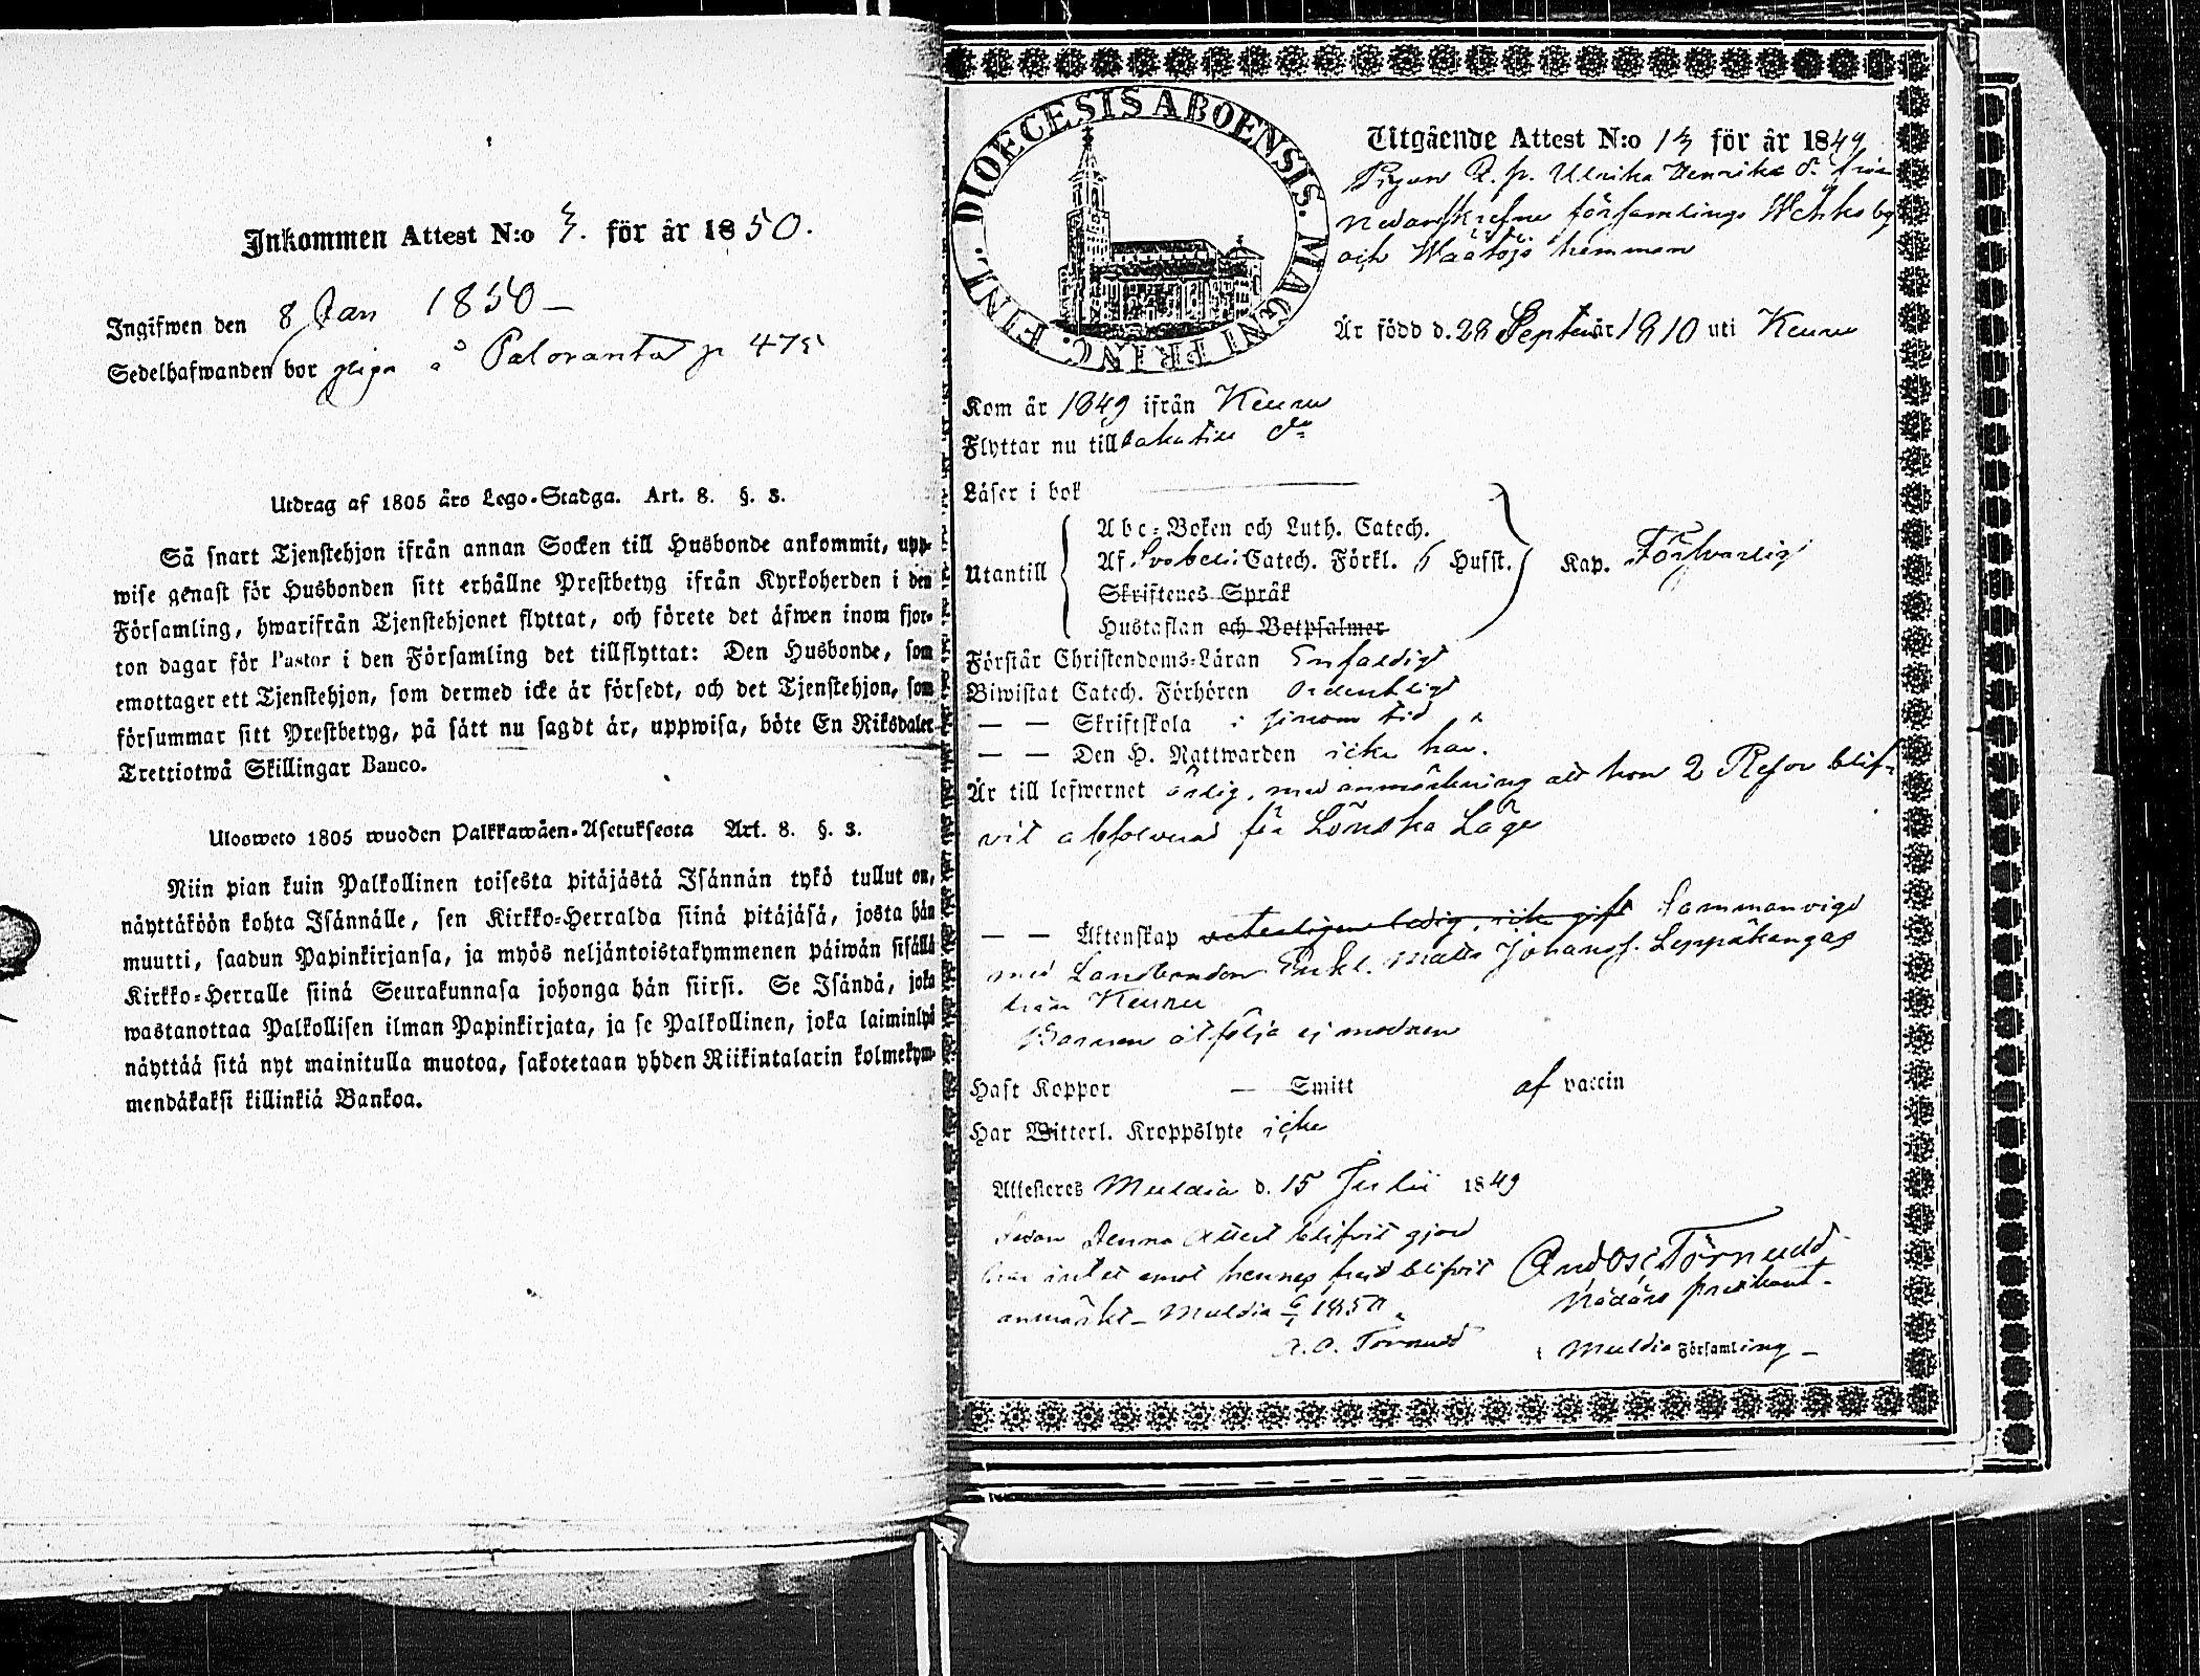 Inkommen Attest N:o 3. för år 1850.
Ingifwen den 8 Jan 1850 –
Sedelhafwanden bor å Paloranta p 475
Utdrag af 1805 års Lego-Stadga. Art. 8. §. 3.
Så snart Tjenstehjon ifrån annan Socken till Husbonde ankommit, upp-
wise genast för Husbonden sitt erhållne Prestbetyg ifrån Kyrkoherden i den
Församling, hwarifrån Tjenstehjonet flyttat, och förete det äfwen inom fjor-
ton dagar för Pastor i den Församling det tillflyttat: Den Husbonde, som
emottager ett Tjenstehjon, som dermed icke är försedt, och det Tjenstehjon, som
försummar sitt Prestbetyg, på sätt nu sagdt är, uppwisa, böte En Riksdaler
Trettiotwå Skillingar Banco.
Ulosweto 1805 wuoden Palkkawäen-Asetuksesta Art. 8. §. 3.
Niin pian kuin Palkollinen toisesta pitäjästä Isännän tykö tullut on,
näyttäköön kohta Isännälle, sen Kirkko-Herralda siinä pitäjäsä, josta hän
muutti, saadun Papinkirjansa, ja myös neljäntoistakymmenen päiwän sisällä
Kirkko-Herralle siinä Seurakunnasa johonga hän siirsi. Se Isändä, joka
wastanottaa Palkollisen ilman Papinkirjata, ja se Palkollinen, joka laiminlyö
näyttää sitä nyt mainitulla muotoa, sakotetaan yhden Riikintalarin kolmekym-
mendäkaksi killinkiä Bankoa.
DIOECESIS ABOENSIS. MAGNI PRINC. FINL.
Utgående Attest N:o 13 för år 1849
Pigan Ulrika Henriks d. från
nedanskrefne församlings Wehkoby
och Waatojs hemman
Är född d. 28 Septem år 1810 uti Keuru
Kom år 1849 ifrån Keuru
Flyttar nu till do
Läser i bok
Utantill
Abc-Boken och Luth. Catech.
Af Svebelii Catech. Förkl. 5 Husst.
Skriftenes Språk
Hustaflan och Botpsalmer
Kap. Försvarligt
Förstår Christendoms-Läran Enfaldigt
Biwistat Catech. Förhören Ordentligt
— — Skriftskola i sinom tid
— — Den H. Nattwarden icke har.
Är till lefwernet ärlig, med anmärkning att hon 2 Resor blif-
vit absolverad för Lönska Läge
— — Äktenskap veterligen ledig, icke gift Sammanvigd
med Landbonden Enkl. Matts Johanss. Leppäkangas
från Keuru
Barnen åtfölja ej modren
Haft Koppor — Smitt af vaccin
Har Witterl. Kroppslyte icke
Attesteres Muldia d. 15 Julii 1849
Sedan Denna Attest blifvit gjord
har intet emot hennes frejd blifvit
anmärkt – Muldia 6/1 1850.
A. O. Törnudd
And Os: Törnudd
Nådårs predikant.
i Muldia Församling –